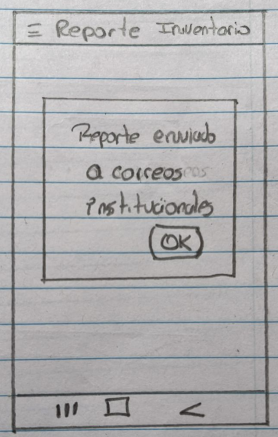 Reporte Inventario
Reporte enviado
a correos
institucionales
OK